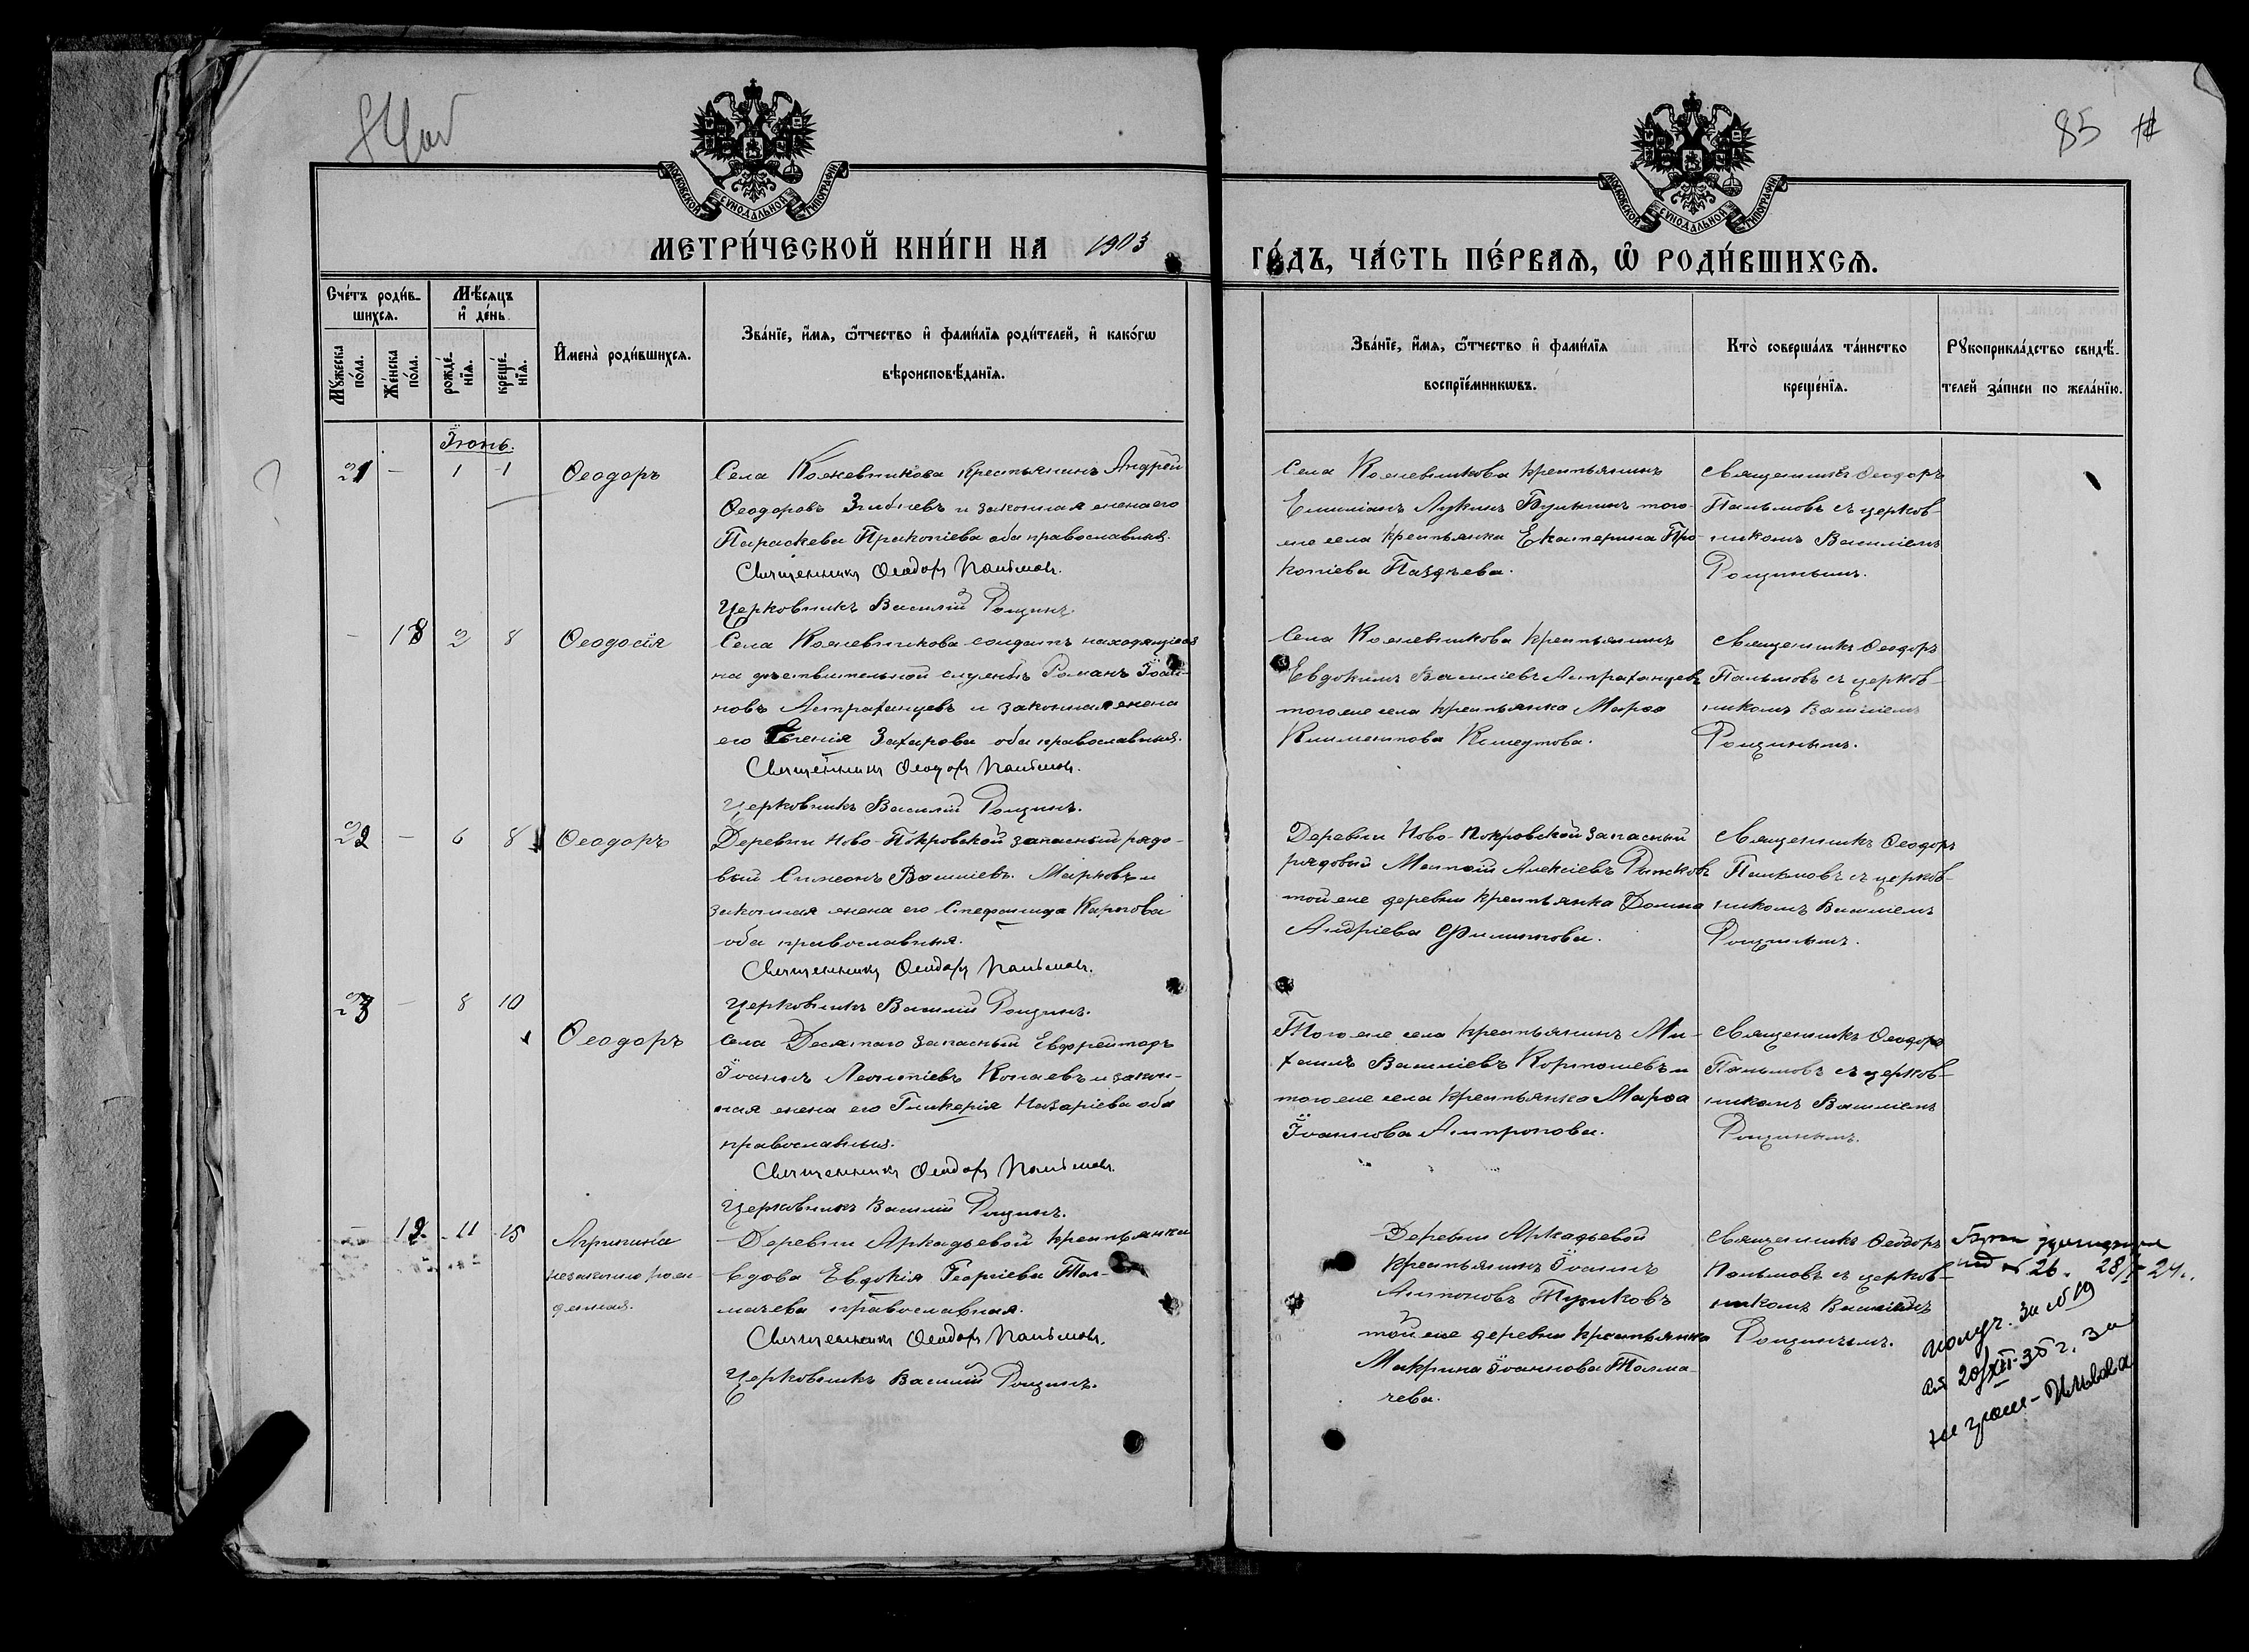 84об
85
МОСКОВСКОЙ СѴНОДАЛЬНОЙ ТИПОГРАФІИ
МОСКОВСКОЙ СѴНОДАЛЬНОЙ ТИПОГРАФІИ
МЕТРИ́ЧЕСКОЙ КНИ́ГИ НА 1903
ГО́ДЪ, ЧА́СТЬ ПЕ́РВАѦ, Ѡ РОДИ́ВШИХСѦ.
Сче́тъ роди́в-
шихсѧ.
Мꙋ́жеска
по́ла.
Же́нска
по́ла.
Мѣ́сѧцъ
и҆ де́нь
рожде́-
нїѧ.
креще́-
нїѧ.
И҆мена̀ роди́вшихсѧ.
Зва́нїе, и҆́мѧ, ѻ҆́тчество и҆ фами́лїѧ роди́телей, и҆ како́гѡ
вѣроисповѣ́данїѧ.
Зва́нїе, и҆́мѧ, ѻ҆́тчество и҆ фами́лїѧ
воспрїе́мникѡвъ.
Кто̀ соверша́лъ та́инство
креще́нїѧ.
Рꙋкоприкла́дство свидѣ́-
телей за́писи по жела́нїю.
Іюнь.
21 - 1 1 Ѳеодоръ
Села Кожевникова крестьянинъ Андрей
Ѳеодоровъ и законная жена его
Параскева Прокопіева оба православныя.
Священникъ Ѳеодоръ Пальмовъ.
Церковникъ Василій Рощинъ.
Села Кожевникова крестьянинъ
Емиліанъ Лукинъ того-
же села крестьянка Екатерина Про-
копіева
Священникъ Ѳеодоръ
Пальмовъ съ церков-
никомъ Василіемъ
Рощинымъ.
- 18 2 8 Ѳеодосія
Села Кожевникова солдатъ находящійся
на дѣствительной службѣ Романъ Іоан-
новъ Астраханцевъ и законная жена
его Евгенія Захарова оба православныя.
Священникъ Ѳеодоръ Пальмовъ.
Церковникъ Василій Рощинъ.
Села Кожевникова крестьянинъ
Евдокимъ Василіевъ Астраханцевъ
того же села крестьянка Марѳа
Климентова
Священникъ Ѳеодоръ
Пальмовъ съ церков-
никомъ Василіемъ
Рощинымъ.
22 - 6 8 Ѳеодоръ
Деревни Ново-Покровской запасный рядо-
вый Симеонъ Василіевъ Марковъ и
законная жена его Стефанида Карпова
оба православныя.
Священникъ Ѳеодоръ Пальмовъ.
Церковникъ Василій Рощинъ.
Деревни Ново-Покровской запасный
рядовый Матѳій Алексіевъ Рыжковъ
той же деревни крестьянка Домна
Андріева Филиппова.
Священникъ Ѳеодоръ
Пальмовъ съ церков-
никомъ Василіемъ
Рощинымъ.
23 - 8 10 Ѳеодоръ
Села Десятаго запасный Евфрейторъ
Іоаннъ Леонтіевъ и закон-
ная жена его Гликерія Назаріева оба
православныя.
Священникъ Ѳеодоръ Пальмовъ.
Церковникъ Василій Рощинъ.
Того же села крестьянинъ Ми-
хаилъ Василіевъ и
того же села крестьянка Марѳа
Іоаннова Антропова.
Священникъ Ѳеодоръ
Пальмовъ съ церков-
никомъ Василіемъ
Рощинымъ.
- 19 11 15 Агрипина
незаконно рож-
денная.
Деревни Аркадьевой крестьянка
вдова Евдокія Георгіева Тол-
мачева православная.
Священникъ Ѳеодоръ Пальмовъ.
Церковникъ Василій Рощинъ.
Деревни Аркадьевой
крестьянинъ Іоаннъ
Антоновъ
той же деревни крестьянка
Макрина Іоаннова Толма-
чева.
Священникъ Ѳеодоръ
Пальмовъ съ церков-
никомъ Василіемъ
Рощинымъ.
№ 26. 24г.
получ. за №19
20/XII-35г. за